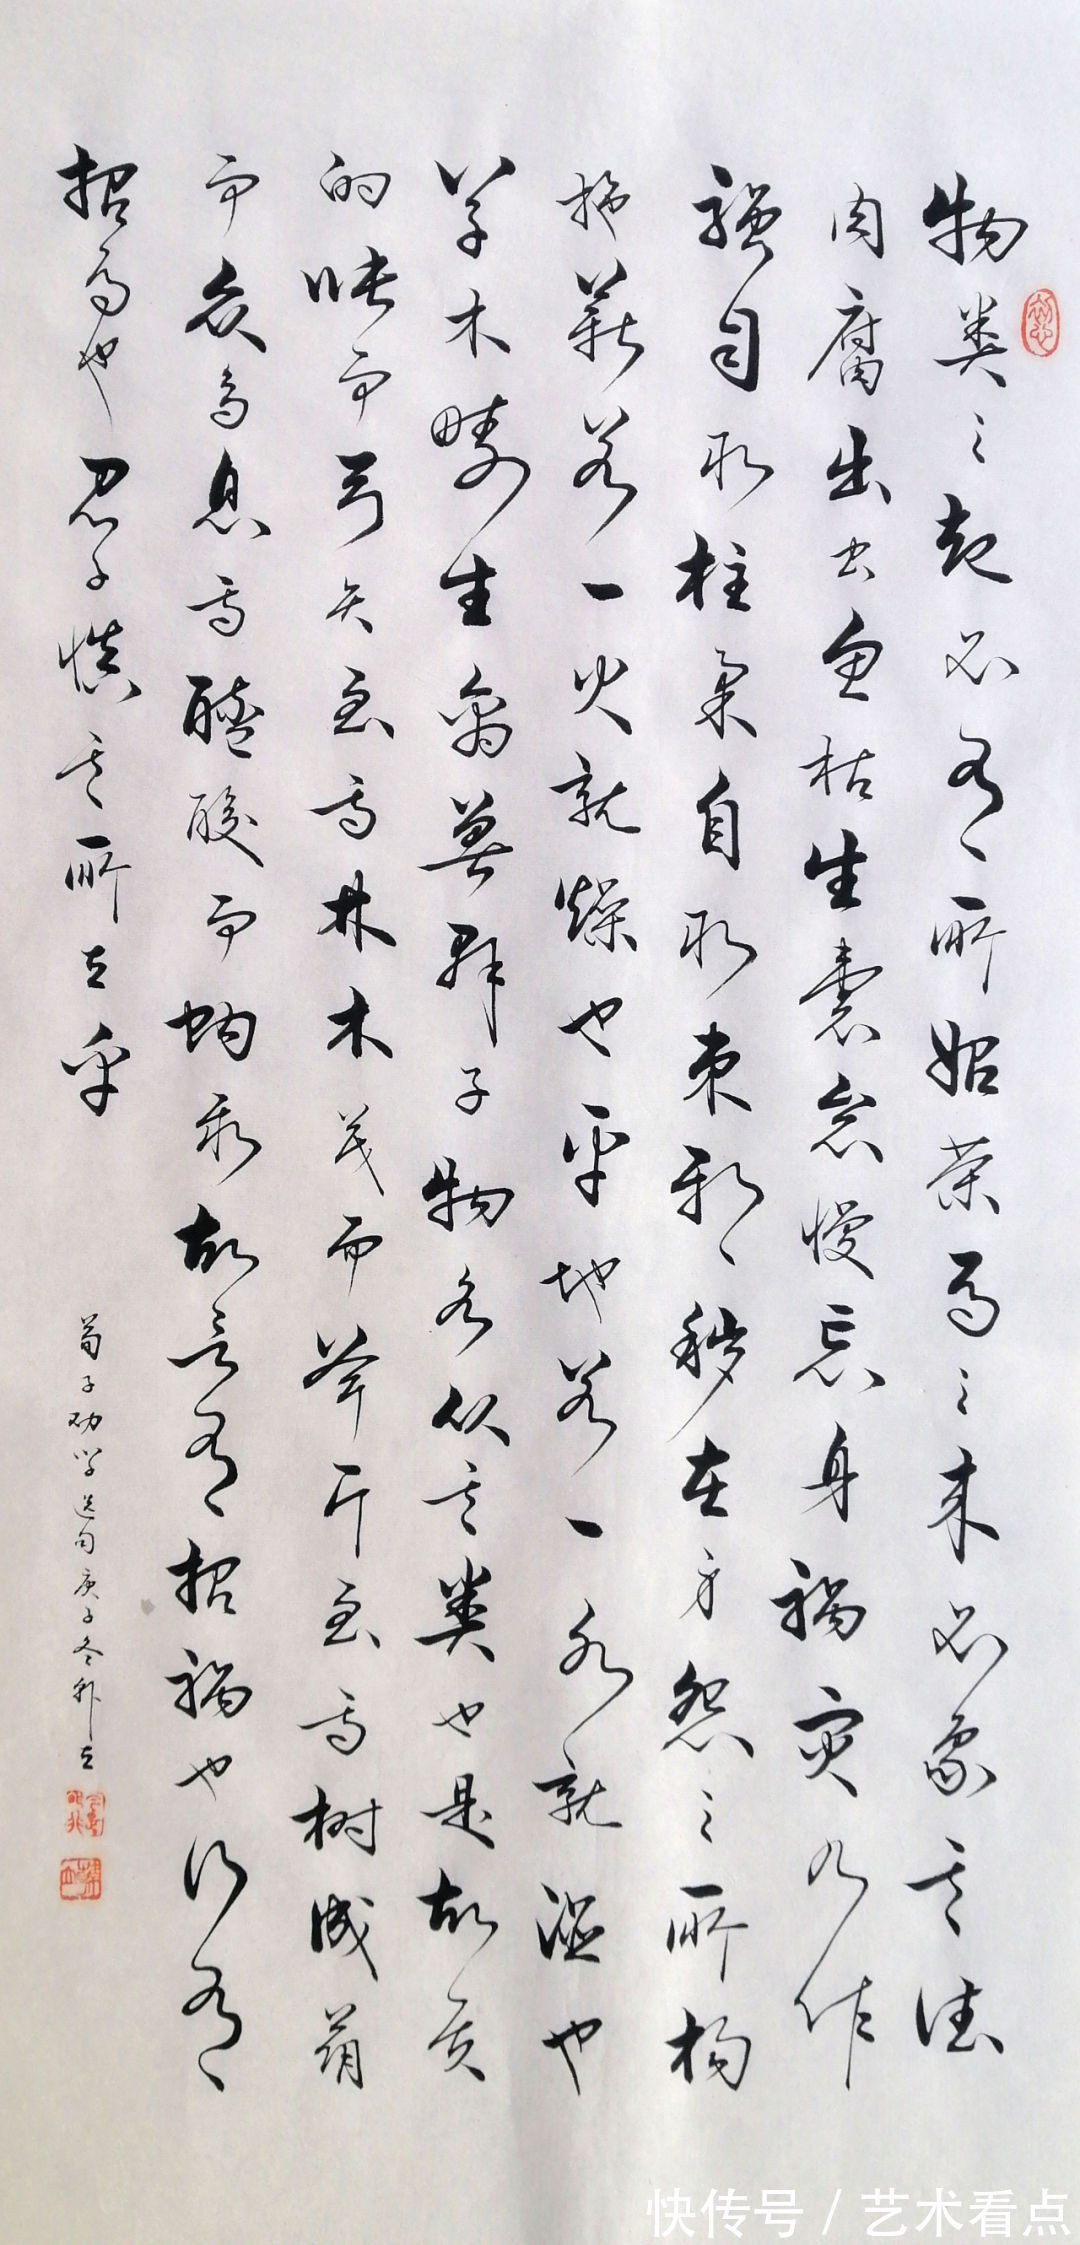 物类之起必有所始荣辱之来必象其德
肉腐出虫鱼枯生蠹怠慢忘身祸灾乃作
强自取柱柔自取束邪秽在身怨之所构
施薪若一火就燥也平地若一水就湿也
草木畴生禽兽群焉物各从其类也是故质
的张而弓矢至焉林木茂而斧斤至焉树成荫
而众鸟息焉醯酸而蚋聚故言有招祸也行有
招辱也君子慎其所立乎
荀子劝学选句庚子冬立
快传号 / 艺术看点